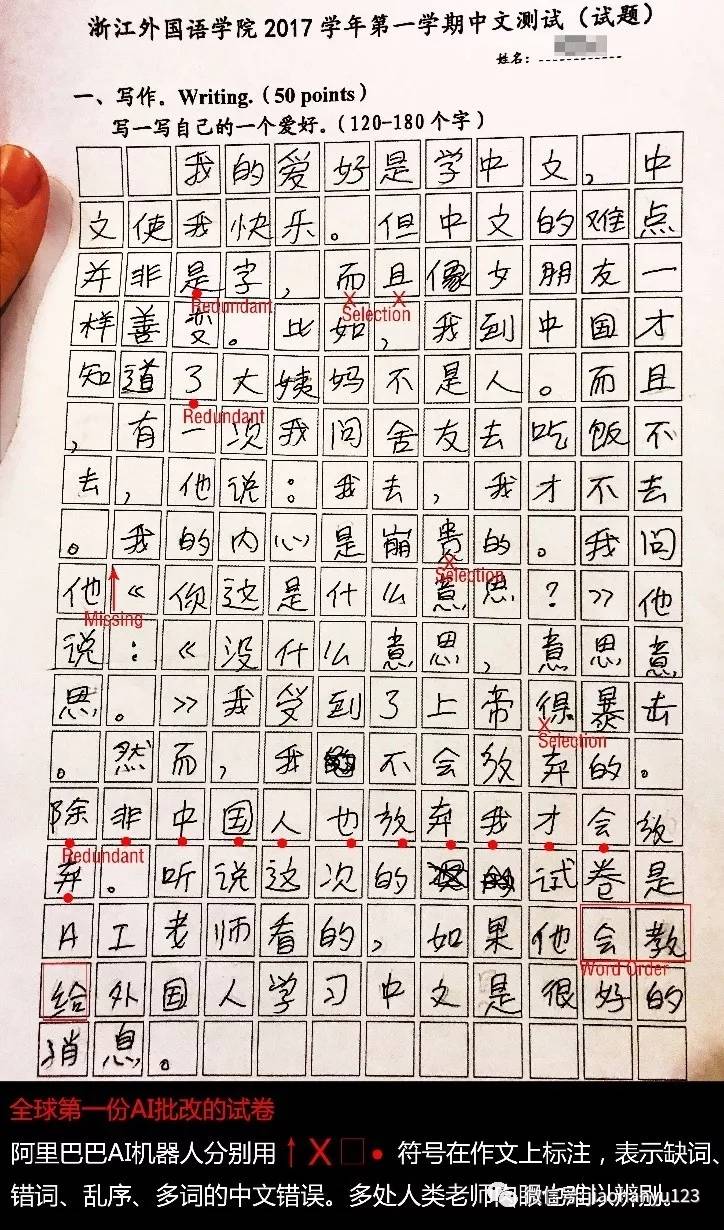 浙江外国语学院 2017 学年第一学期中文测试（试题）
姓名：
一、写作。Writing.（50 points）
写一写自己的一个爱好。（120-180 个字）
我的爱好是学中文，中
文使我快乐。但中文的难点
并非是字，而且像女朋友一
Redundant
Selection
样善变。比如，我到中国才
知道了大姨妈不是人。而且
Redundant
，有一次我问舍友去吃饭不
去，他说：我去，我才不去
。我的内心是崩贵的。我问
Selection
他《你这是什么意思？》他
Missing
说：《没什么意思，意思意
思。》我受到了上帝得暴击
Selection
。然而，我不会放弃的。
除非中国人也放弃我才会放
Redundant
弃。听说这次的试卷是
AI老师看的，如果他会教
Word Order
给外国人学习中文是很好的
消息。
全球第一份AI批改的试卷
阿里巴巴AI机器人分别用↑X□●符号在作文上标注，表示缺词、
错词、乱序、多词的中文错误。多处人类老师肉眼也难以辨别。
微信号: jiaohanyu123